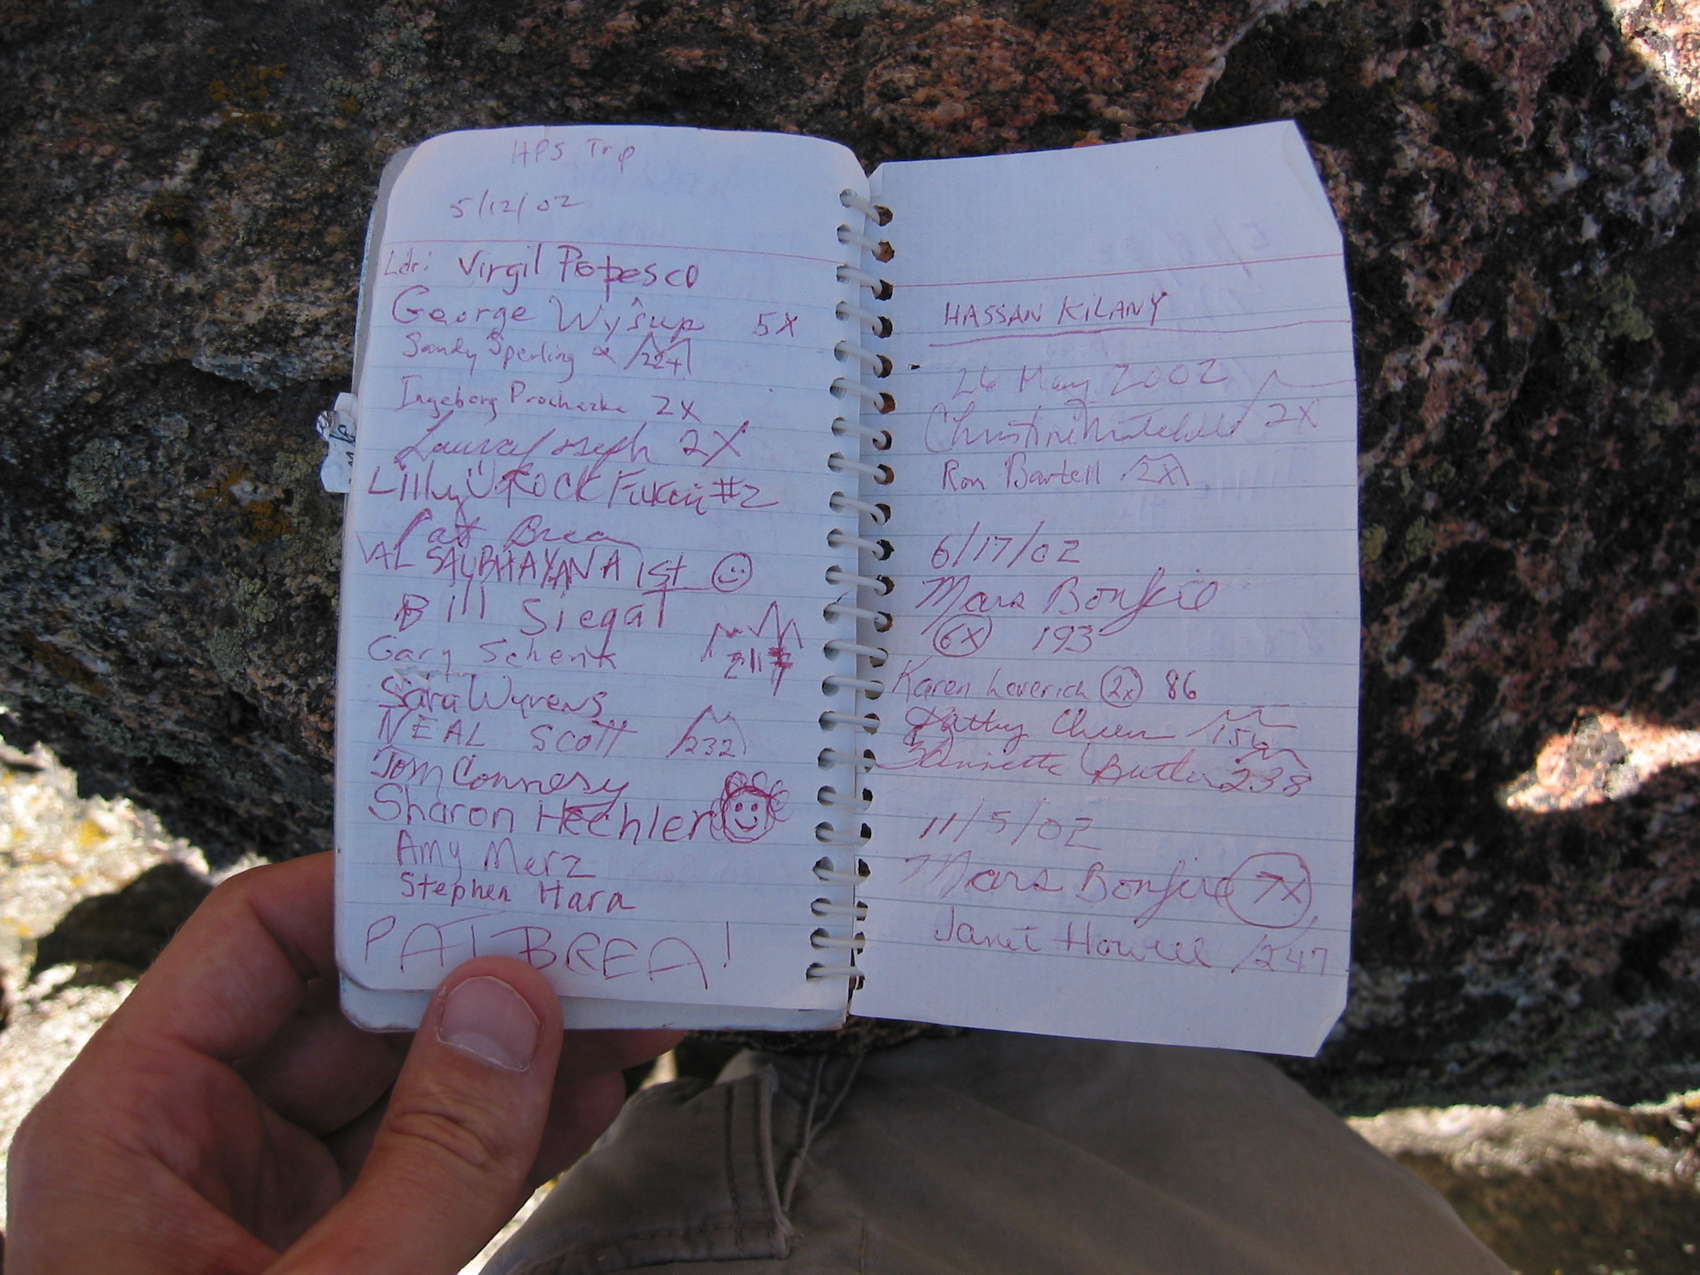 HPS Trip
5/12/02
Ldr: Virgil Popesco
George Wysup 5X
Sandy Sperling 224
Ingeborg Prochazka 2X
Laura Joseph 2X
Lilly ROCK Fukui #2
Pat Brea
VAL SAUBHAYANA 1st
Bill Siegal
Gary Schenk 211
Sara Wyrens
NEAL SCOTT 232
Tom Connery
Sharon Hechler
Amy Merz
Stephen Hara
PAT BREA!
HASSAN KILANY
26 May 2002
Christine Mitchell 2X
Ron Bartell 2X
6/17/02
Mars Bonfire
6X 193
Karen Leverich 2x 86
Kathy Cheever
Annette Butler 238
11/5/02
Mars Bonfire 7X
Janet Howell 247